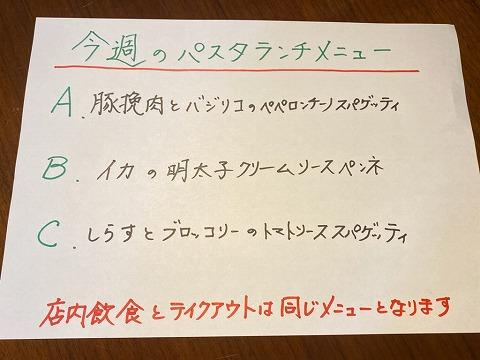 今週のパスタランチメニュー
A. 豚挽肉とバジリコのペペロンチーノスパゲッティ
B. イカの明太子クリームソースペンネ
C. しらすとブロッコリーのトマトソーススパゲッティ
店内飲食とテイクアウトは同じメニューとなります